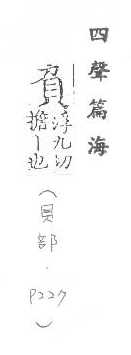 四聲篇海
負
浮九切
擔丨也
(員部.P227)